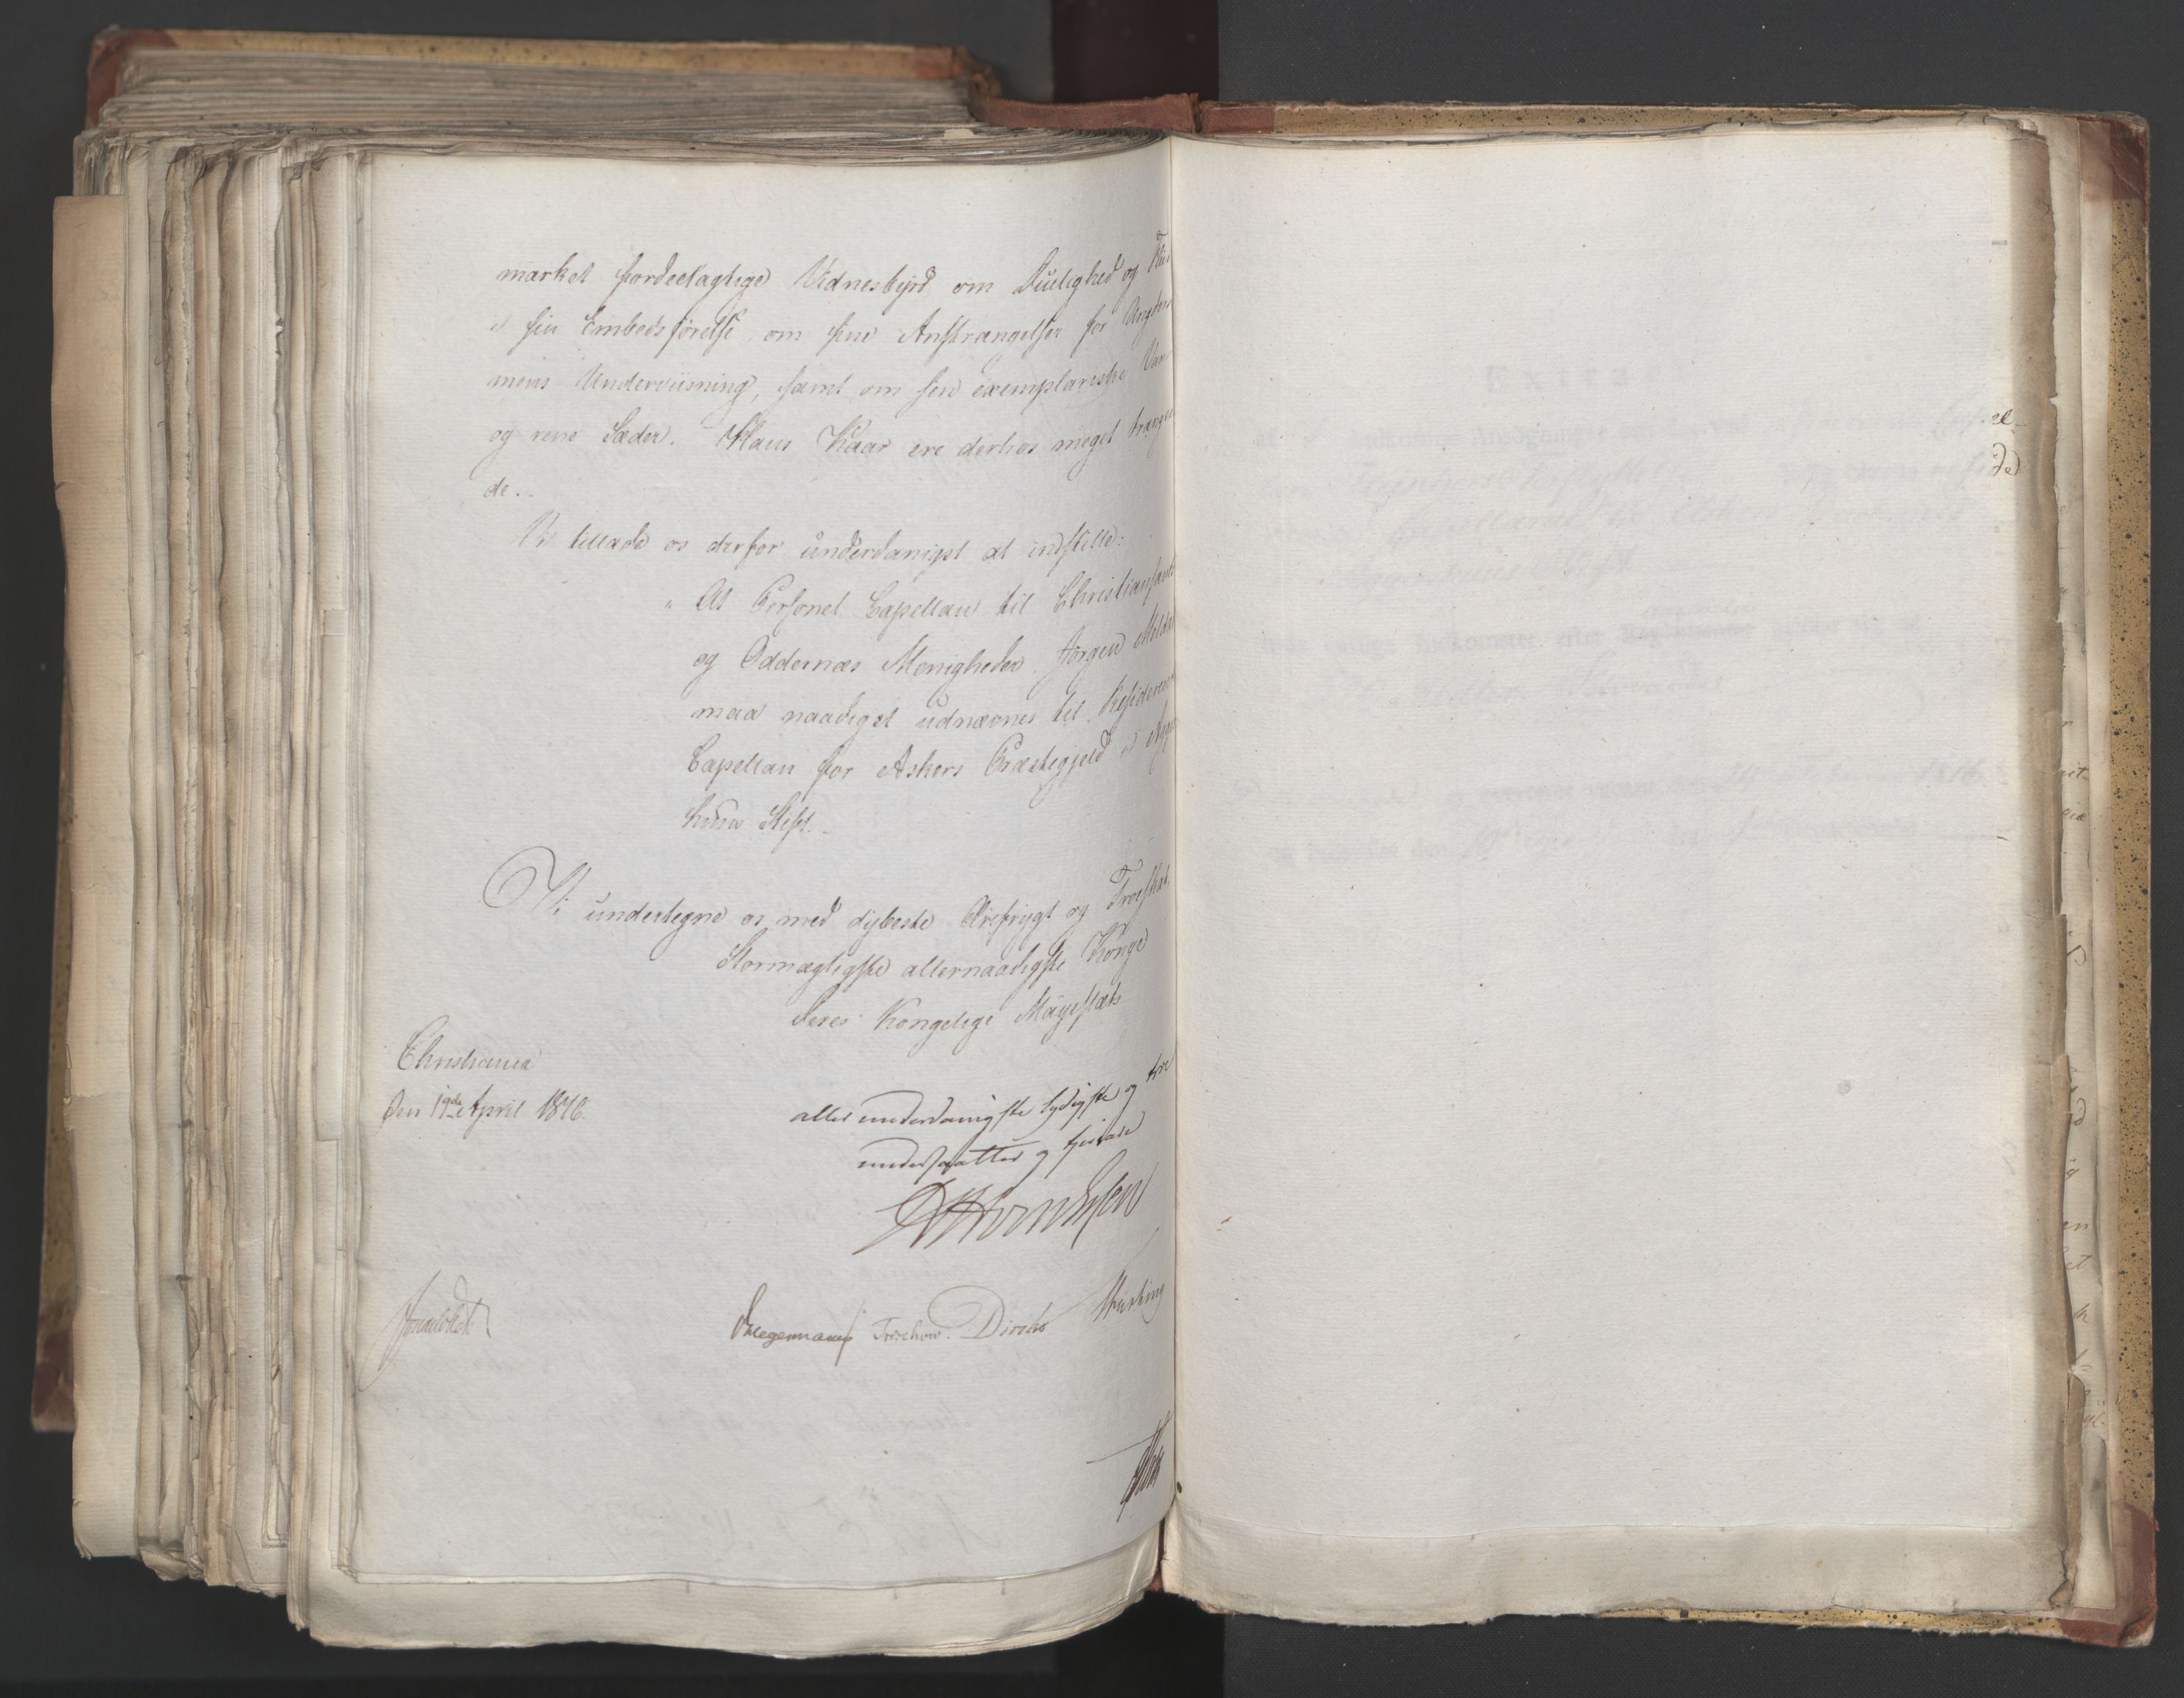 mærket fordeelagtige Vidnesbyrd om Duelighed og
i sin Embedsførelse, om sine Anstrængelser for Ungdom
mens Underviisning, samt om sin exemplariske
og rene Sæder. Hans Kaar ere derhos meget trængen
de.
Vi tillade os derfor underdanigst at indstille:
"At Personel Capellan til Christiansands
og Oddernæs Menigheder Jørgen
maa naadigst udnævnes til Residerende
Capellan for Askers Præstegjeld i Agger
huus Stift.
Vi undertegne os med dybeste Ærefrygt og Troeskab,
Stormægtigste allernaadigste Konge
Deres Kongelige Mayestæts
Christiania
den 19de April 1816.
allerunderdanigste lydigste og troe
undersaatter og tjenere
Diegemann Treschow. Diriks